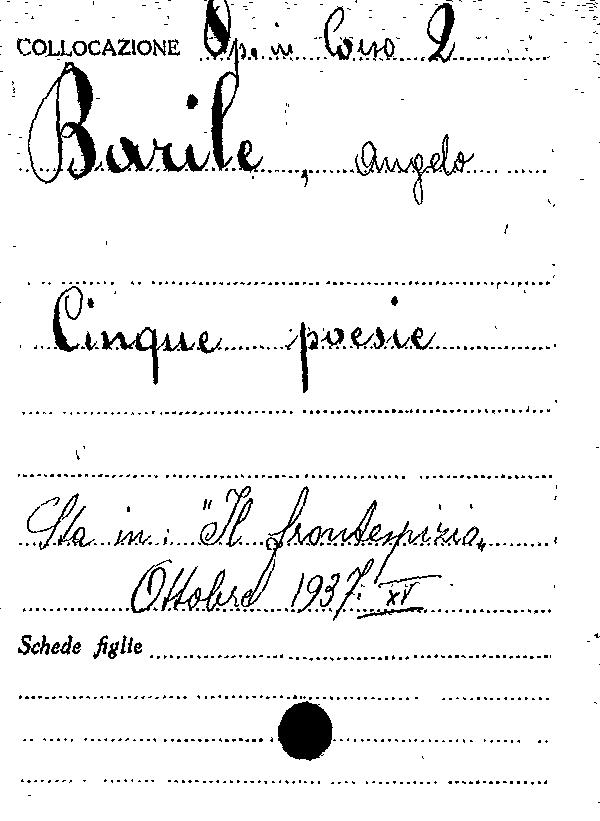 COLLOCAZIONE Op. in Corso 2
Barile, Angelo
Cinque poesie
Sta in: "Il frontespizio„
Ottobre 1937. XV
Schede figlie